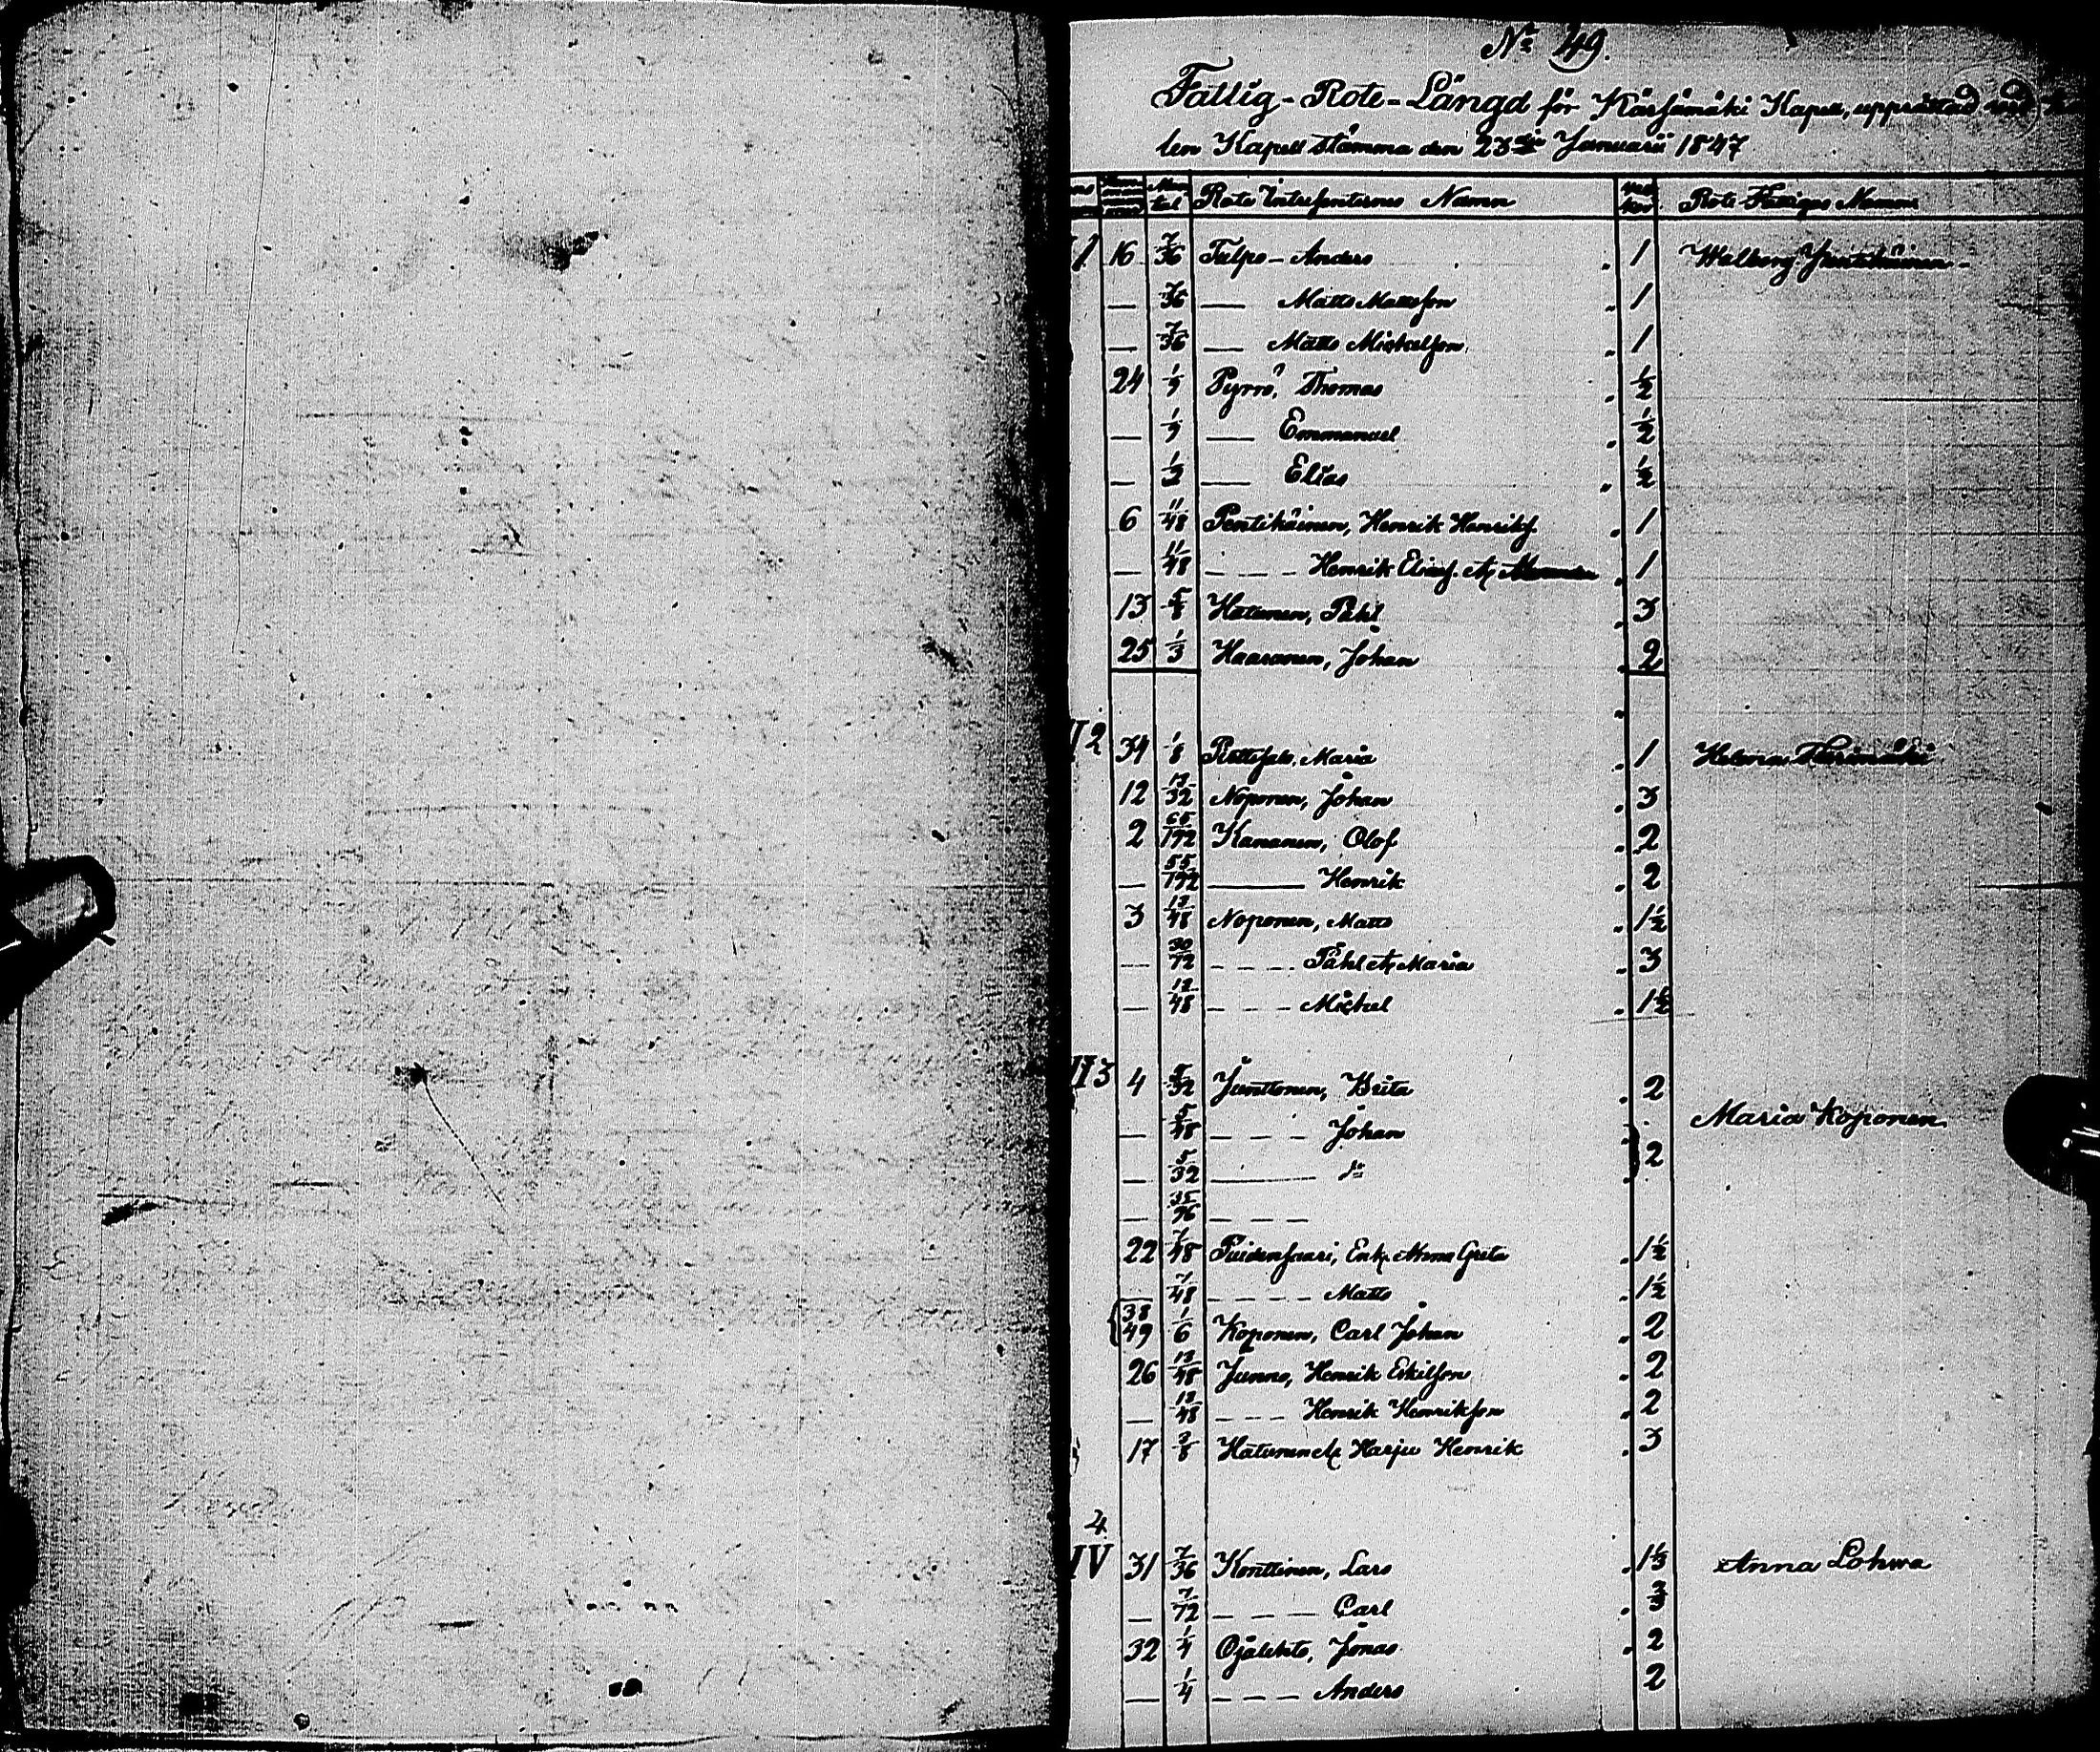 No 49.
Fattig-Rote-Längd för Kärsämäki Kapell, upprättad vid
len Kapell Stämma den 23dje Januarii 1847
Man tal Rote Intressenternes Namn Vec kor Rote Fattiges Namn
I 1 16 7/36 Tulpo - Anders 1 Walborg
— 7/36 — Matts Mattsson 1
— 7/36 — Matts Mickelsson 1
24 1/9 Pyrrö, Thomas 1/2
— 1/9 — Emmanuel 1/2
— — Elias 1/2
6 11/48 Pentikäinen, Henrik Henriks. 1
— 11/48 - - - Henrik Eliass. et 1
13 5/8 Hatunen, Påhl 3
25 1/3 Haaranen, Johan 2
II 2 34 1/8 Maria 1 Helena
12 13/32 Noponen, Johan 3
2 65/192 Kananen, Olof 2
— 55/192 — Henrik 2
3 13/48 Noponen, Matts 1 1/2
— 30/72 - - - Påhl et Maria 3
— 12/48 - - - Michel 1 1/2
III 3 4 5/32 Junttonen, Brita 2
Maria Koponen
— 5/48 - - - Johan
} 2
— 5/32 — do
— 35/96 - - -
22 7/48 Puidensaari, Enk. Anna Greta 1 1/2
— 7/48 - - - - Matts 1 1/2
{ 38 49 1/6 Koponen, Carl Johan 2
26 13/48 Junno, Henrik Eriksson 2
— 13/48 - - - Henrik Henriksson 2
17 3/8 Hatunen et Harju Henrik 3
4
IV 31 7/36 Konttinen, Lars 1 1/3 Anna Lohwa
— 7/72 - - - Carl 2/3
32 1/4 Ojalehto, Jonas 2
— 1/4 - - - Anders 2